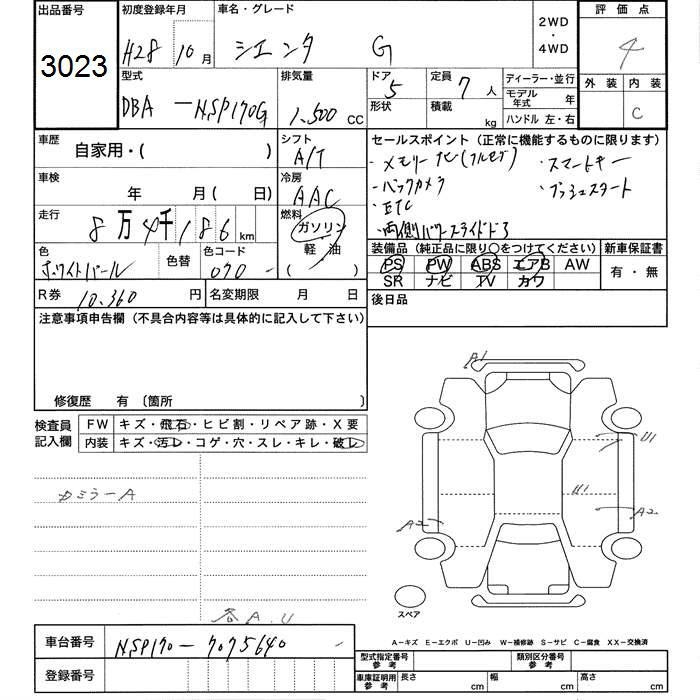 出品番号
3023
初度登録年月
H28 10月
車名・グレード
シエンタ G
2WD
・
4WD
評価点
4
外装 内装
C
型式
DBA-NSP170G
排気量
1,500 CC
ドア 5
形状
定員 7人
積載 kg
ディーラー・並行
モデル年式 年
ハンドル 左・右
車歴
自家用・( )
シフト
A/T
車検
年 月( 日)
冷房
AAC
走行
8万4千186km
燃料
ガソリン
軽油
( )
色
ホワイトパール
色替
色コード
070 -
R券 10,360円
名変期限 月 日
セールスポイント(正常に機能するものに限ります)
・メモリーナビ(フルセグ) ・スマートキー
・バックカメラ ・プッシュスタート
・ETC
・両側パワースライドドア
装備品(純正品に限り○をつけてください)
新車保証書
PS PW ABS エアB AW
SR ナビ TV カワ
有・無
後日品
注意事項申告欄(不具合内容等は具体的に記入して下さい)
修復歴 有〔箇所 〕
検査員
記入欄
FW キズ・飛石・ヒビ割・リペア跡・X要
内装 キズ・汚レ・コゲ・穴・スレ・キレ・破レ
カミラーA
各A.U
A1
U1
U1
A2
A2
スペア
A-キズ E-エクボ U-凹み W-補修跡 S-サビ C-腐食 XX-交換済
車台番号 NSP170-7075640 -
登録番号
型式指定番号
参考
類別区分番号
参考
車庫証明用
参考
長さ cm
幅 cm
高さ cm